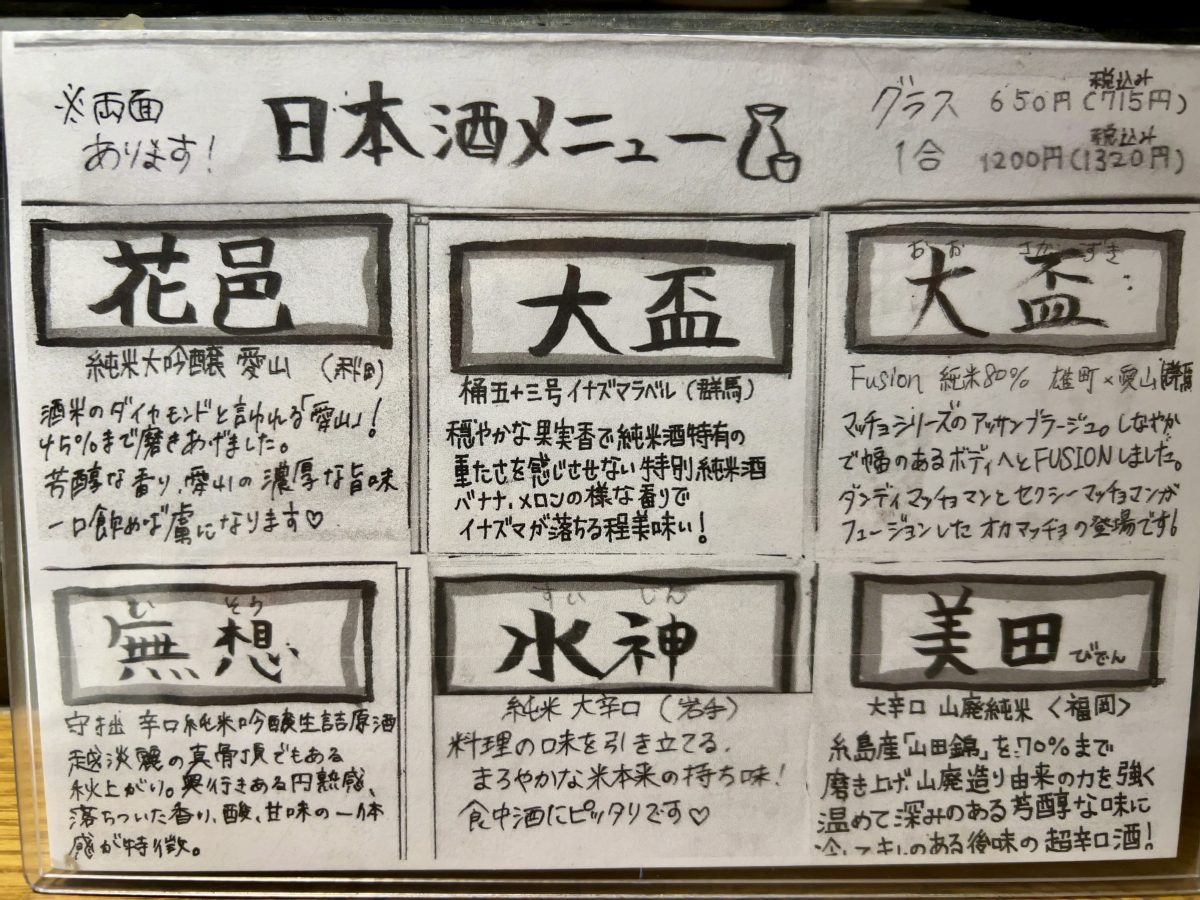 ※両面
あります!
日本酒メニュー
グラス 650円(715円)
税込み
1合 1200円(1320円)
税込み
花邑
純米大吟醸 愛山 (秋田)
酒米のダイヤモンドと言われる「愛山」!
45%まで磨きあげました。
芳醇な香り、愛山の濃厚な旨味
一口飲めば虜になります♡
大盃
桶五十三号 イナズマラベル (群馬)
穏やかな果実香で純米酒特有の
重たさを感じさせない特別純米酒
バナナ、メロンの様な香りで
イナズマが落ちる程美味い!
おお さかずき
大盃
Fusion 純米80% 雄町×愛山
マッチョシリーズのアッサンブラージュ。しなやか
で幅のあるボディへとFUSIONしました。
ダンディマッチョマンとセクシーマッチョマンが
フュージョンした オカマッチョの登場です!
むそう
無想
守拙 辛口純米吟醸生詰原酒
越淡麗の真骨頂でもある
秋上がり。奥行きある円熟感、
落ちついた香り、酸、甘味の一体
感が特徴。
すいじん
水神
純米 大辛口 (岩手)
料理の味を引き立てる、
まろやかな米本来の持ち味!
食中酒にピッタリです♡
美田 びでん
大辛口 山廃純米 〈福岡〉
糸島産「山田錦」を70%まで
磨き上げ、山廃造り由来の力を強く
温めて深みのある芳醇な味に
のある後味の超辛口酒!